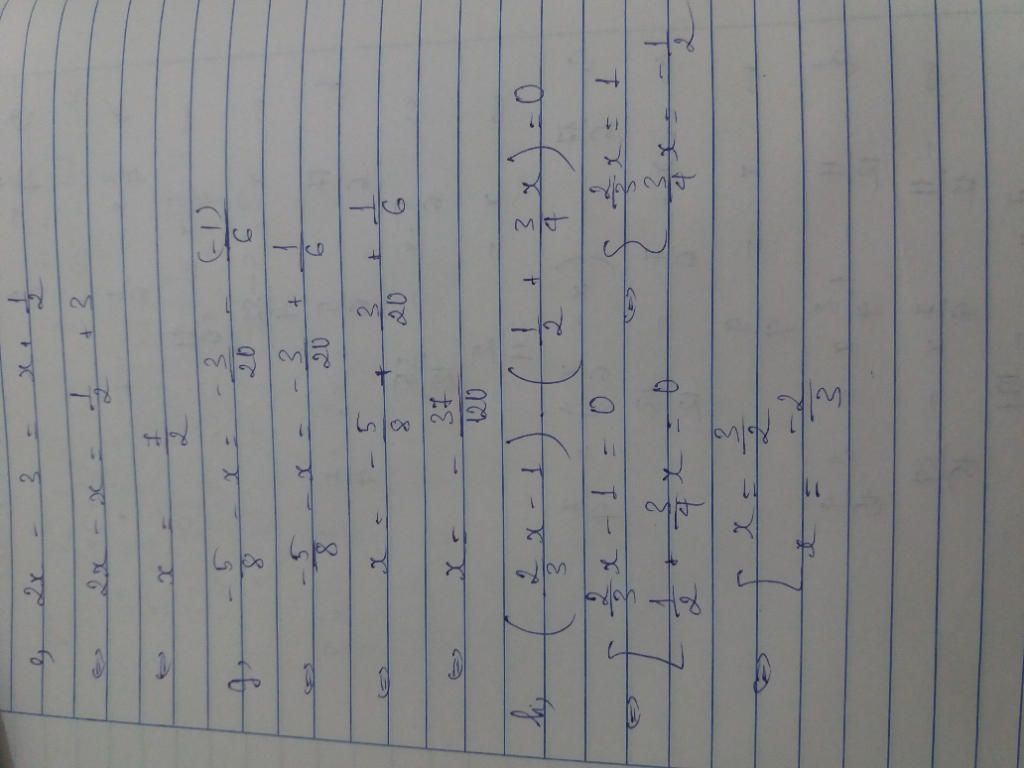 e, 2x - 3 = x + 1/2
⇔ 2x - x = 1/2 + 3
⇔ x = 7/2
g, -5/8 - x = -3/20 - (-1)/6
⇔ -5/8 - x = -3/20 + 1/6
⇔ x = -5/8 + 3/20 + 1/6
⇔ x = -37/120
h, (2/3 x - 1) . (1/2 + 3/4 x) = 0
⇔ [ 2/3 x - 1 = 0 ⇔ { 2/3 x = 1
1/2 + 3/4 x = 0 3/4 x = -1/2
⇔ [ x = 3/2
x = -2/3